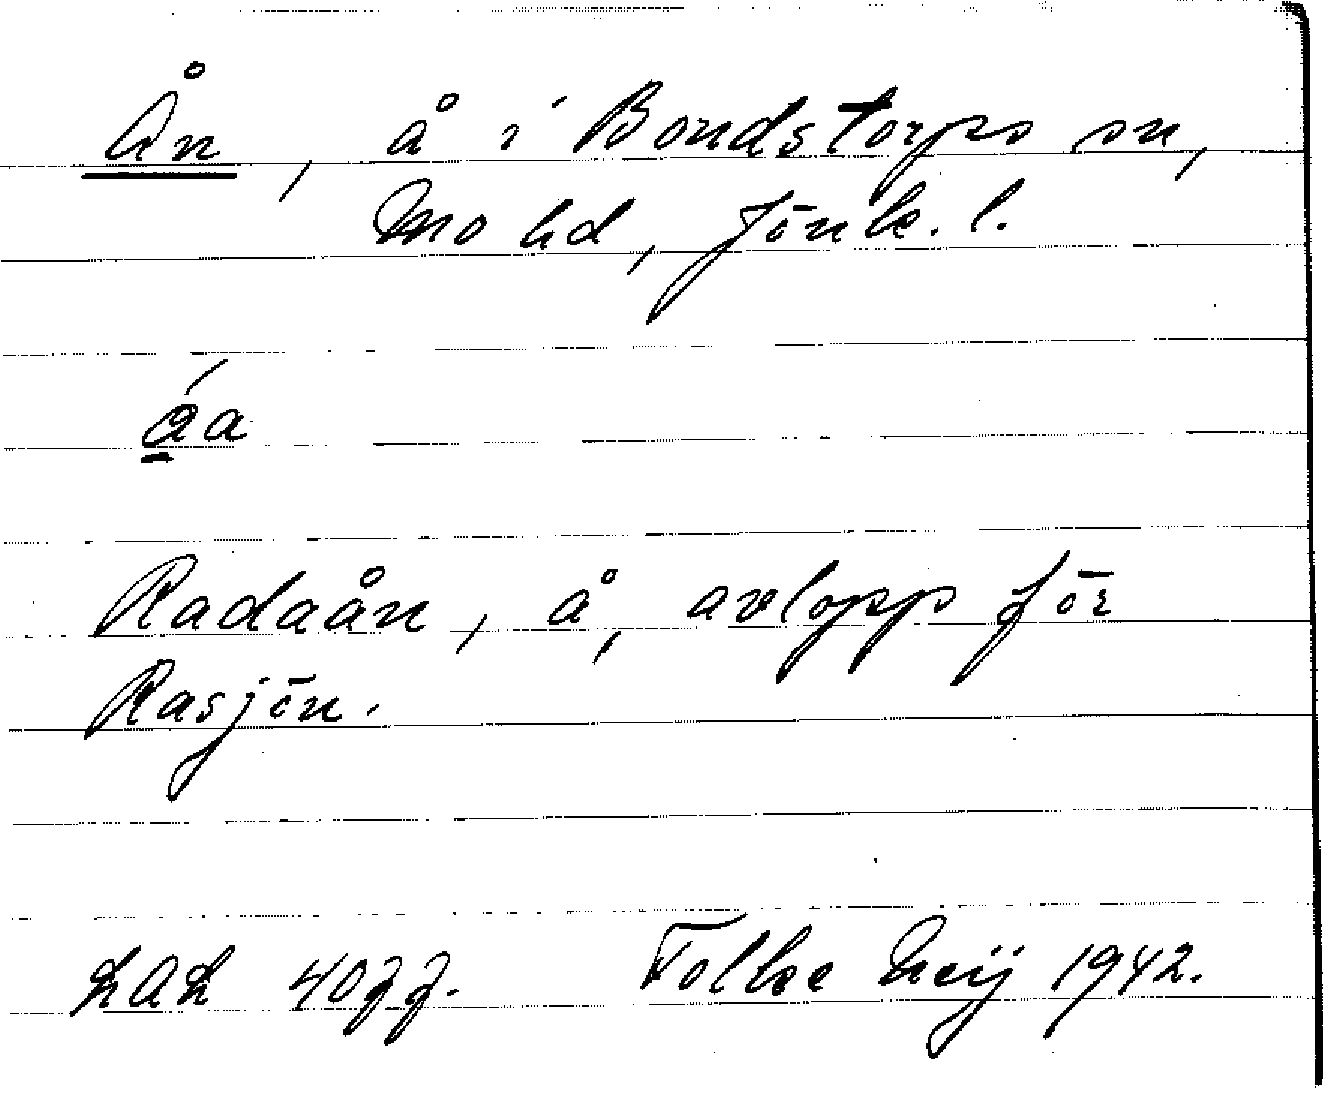 Ån, å i Bondstorps sn,
Mo hd, Jönk. l.
áa
Radaån, å, avlopp för
Rasjön.
LAL 4077. Folke Neij 1942.